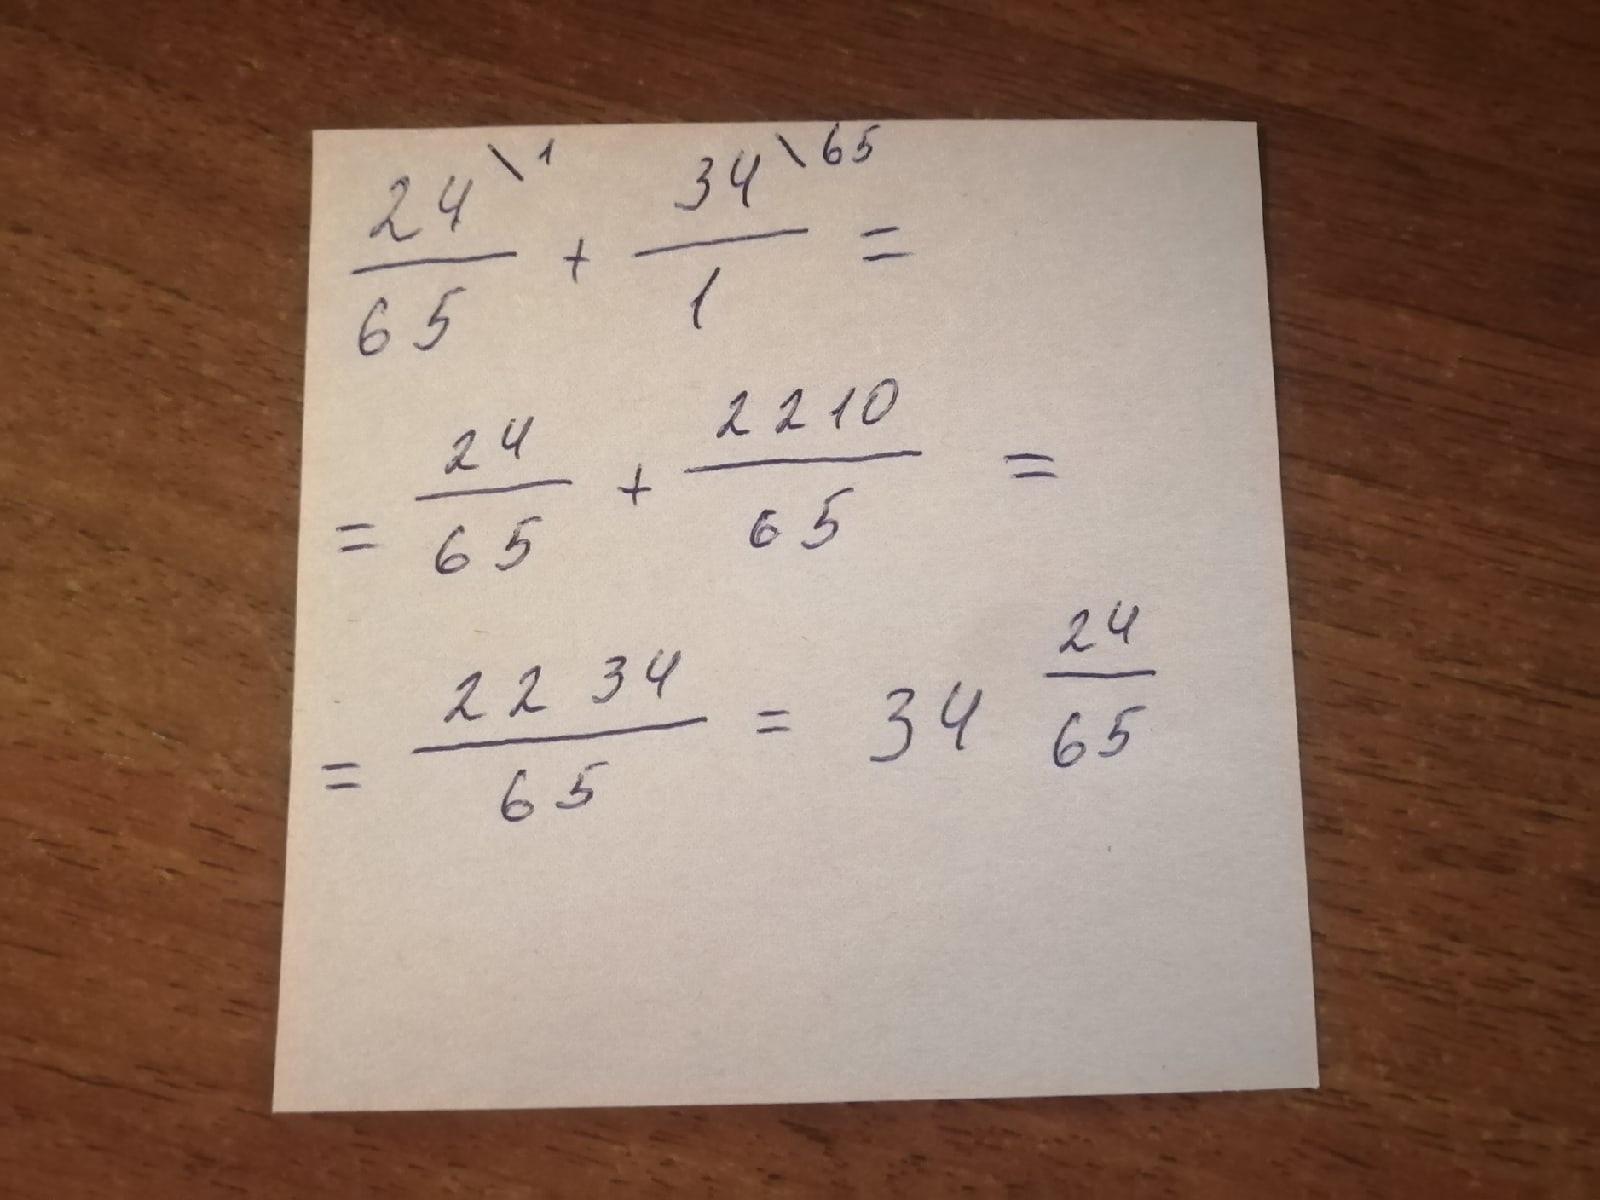 24\1/65 + 34\65/1 =
= 24/65 + 2210/65 =
= 2234/65 = 34 24/65